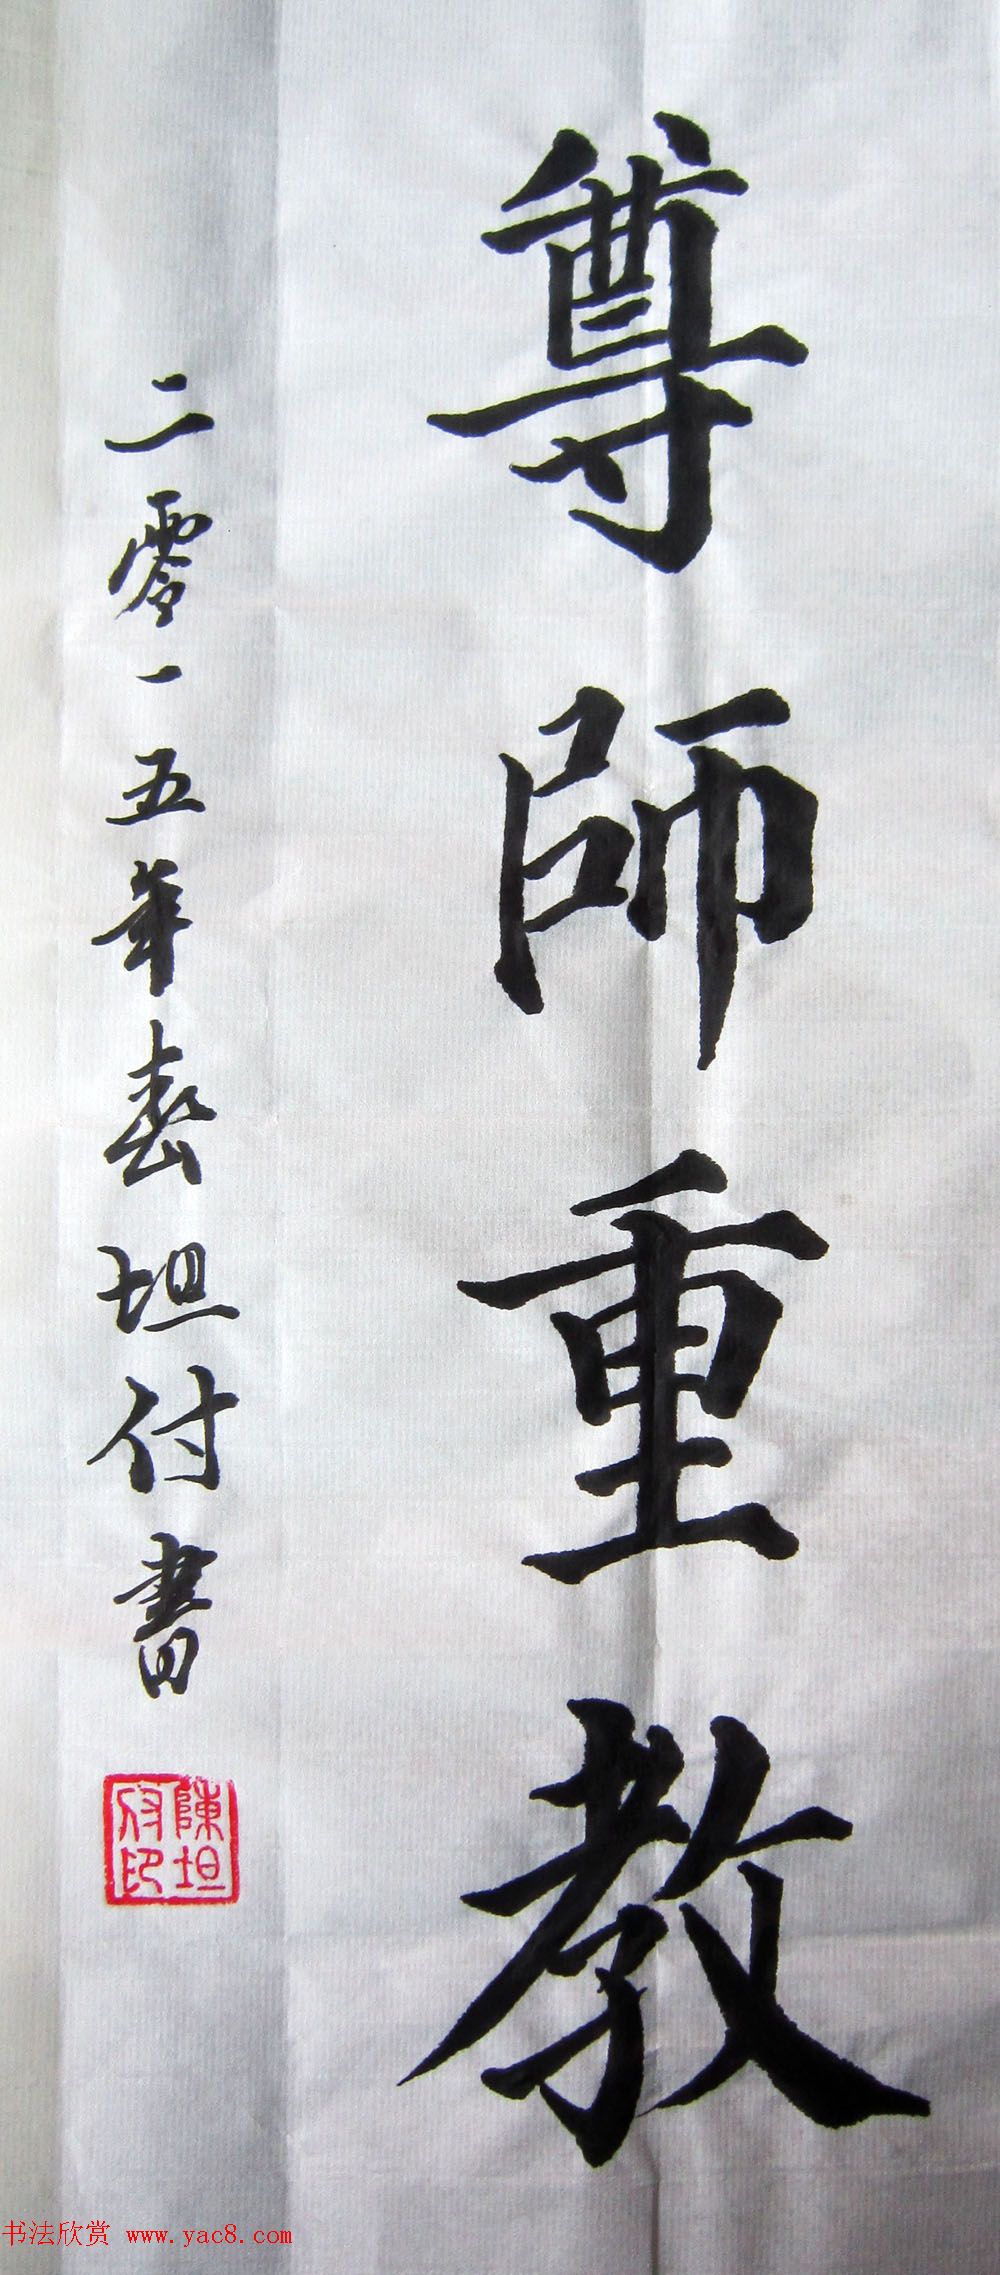 尊師重教
二零一五年春坦付書
陳坦付印
书法欣赏 www.yac8.com